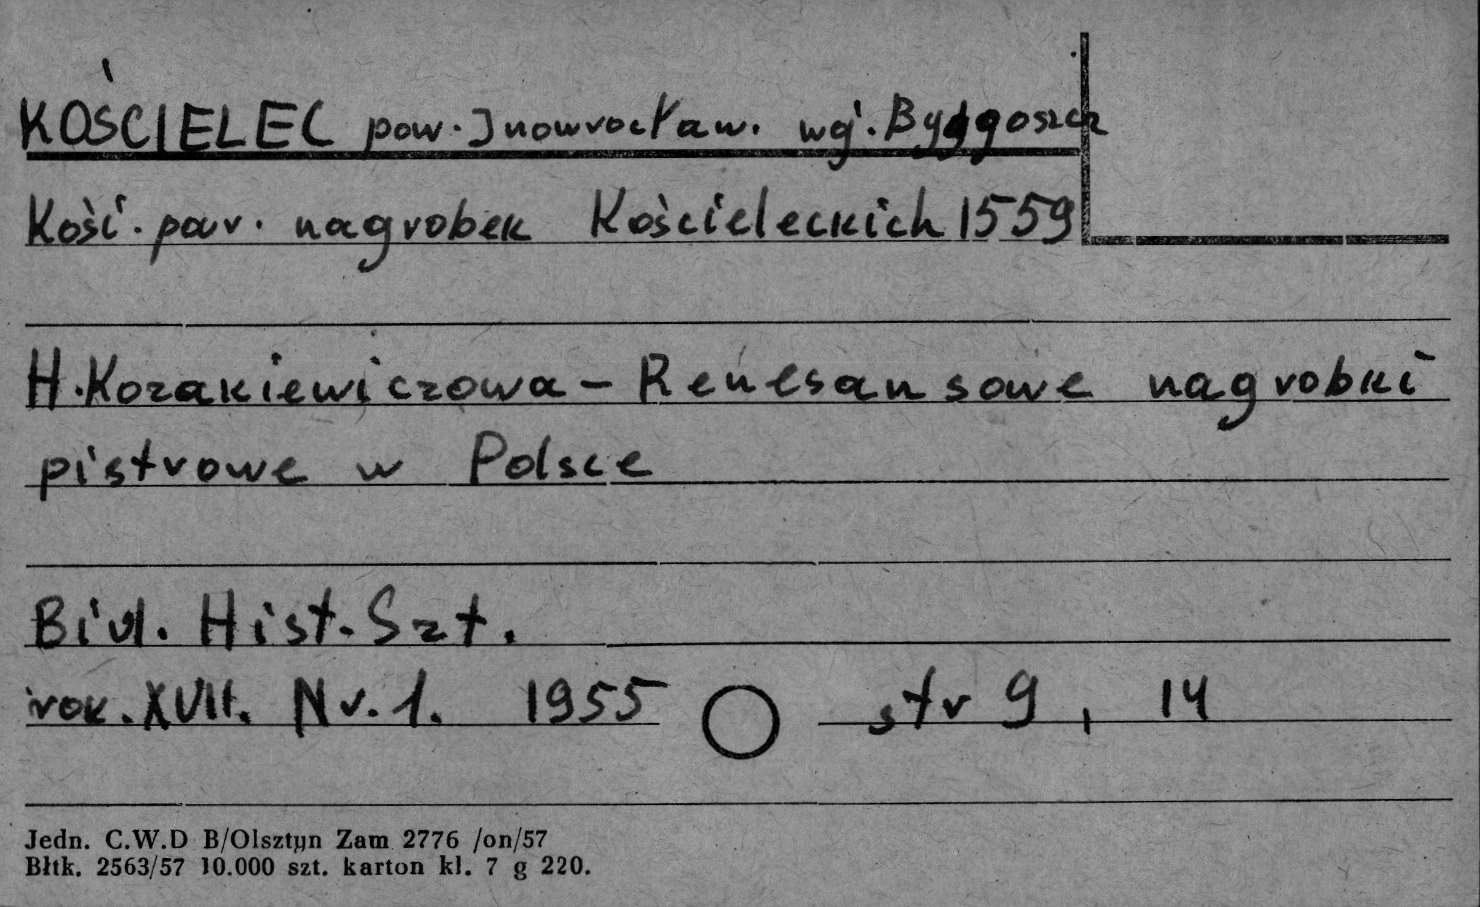 KOŚCIELEC pow. Inowrocław. wój. Bydgoszcz
Kośc. par. nagrobek Kościeleckich 1559
H. Kozakiewiczowa - Renesansowe nagrobki
pistrowe w Polsce
Biul. Hist. Szt.
rok. XVII. Nr. 1. 1955 str 9, 14
Jedn. C.W.D B/Olsztyn Zam 2776 /on/57
Błtk. 2563/57 10.000 szt. karton kl. 7 g 220.